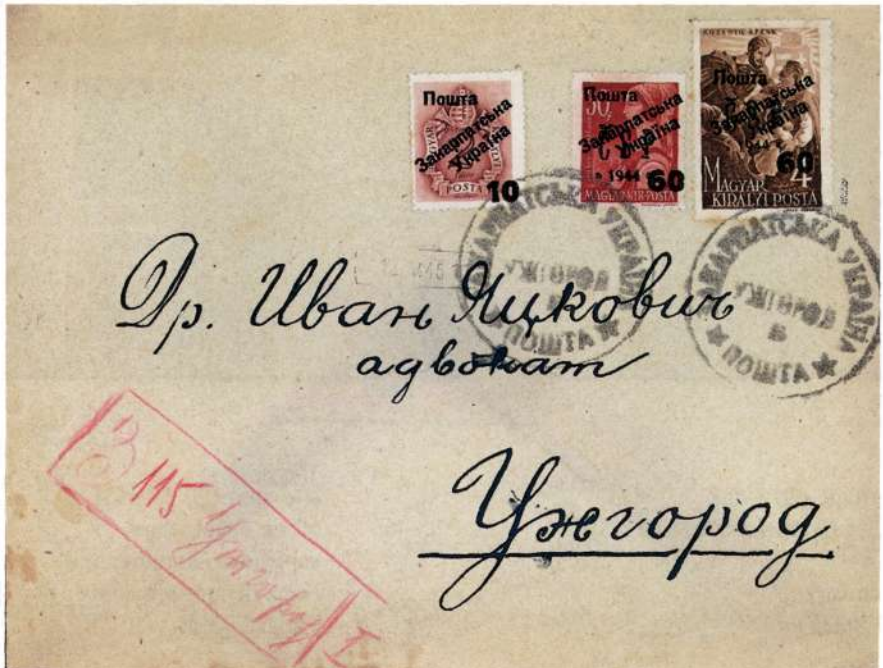 Пошта
Закарпатська
Україна
10
POSTA
Пошта
Закарпатська
Україна
1944
60
MAGYAR KIR. POSTA
Пошта
Закарпатська
Україна
60
4
MAGYAR
KIRÁLYI POSTA
ЗАКАРПАТСЬКА УКРАЇНА
УЖГОРОД
В
ПОШТА
ЗАКАРПАТСЬКА УКРАЇНА
УЖГОРОД
В
ПОШТА
Др. Иван Яцкович
адвокат
Ужгород
115 Ужгород I